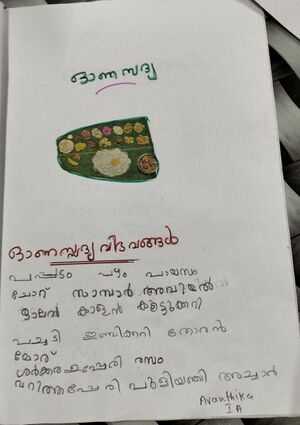 ഓണസദ്യ
ഓണസദ്യ വിഭവങ്ങൾ
പപ്പടം പഴം പായസം
ചോറ് സാമ്പാർ അവിയൽ
ഓലൻ കാളൻ കൂട്ടുക്കറി
പച്ചടി ഇഞ്ചിക്കറി തോരൻ
മോര്
ശർക്കര ഉപ്പേരി രസം
വറുത്തുപ്പേരി പുളിയിഞ്ചി അച്ചാർ
Avanthika
I A